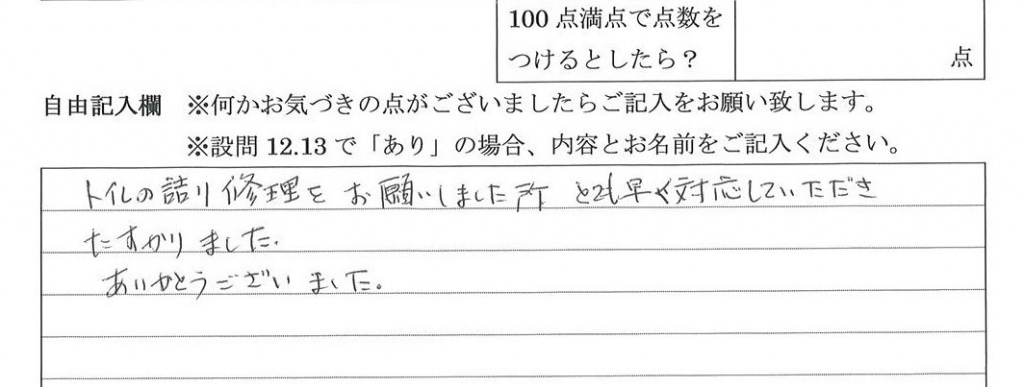 100 点満点で点数を
つけるとしたら？
点
自由記入欄 ※何かお気づきの点がございましたらご記入をお願い致します。
※設問 12.13 で「あり」の場合、内容とお名前をご記入ください。
トイレの詰り修理を お願いしました所 とても早く対応していただき
たすかりました.
ありがとうございました。